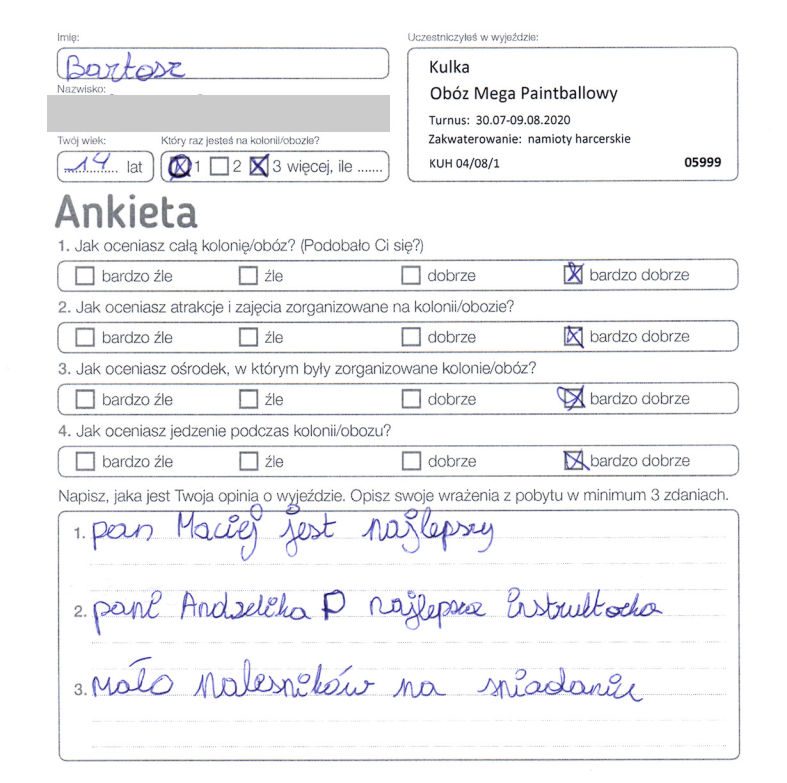 Imię:
Uczestniczyłeś w wyjeździe:
Bartosz
Kulka
Obóz Mega Paintballowy
Nazwisko:
Turnus: 30.07-09.08.2020
Zakwaterowanie: namioty harcerskie
KUH 04/08/1 05999
Twój wiek: Który raz jesteś na kolonii/obozie?
14 lat 1 2 3 więcej, ile .......
Ankieta
1. Jak oceniasz całą kolonię/obóz? (Podobało Ci się?)
bardzo źle źle dobrze bardzo dobrze
2. Jak oceniasz atrakcje i zajęcia zorganizowane na kolonii/obozie?
bardzo źle źle dobrze bardzo dobrze
3. Jak oceniasz ośrodek, w którym były zorganizowane kolonie/obóz?
bardzo źle źle dobrze bardzo dobrze
4. Jak oceniasz jedzenie podczas kolonii/obozu?
bardzo źle źle dobrze bardzo dobrze
Napisz, jaka jest Twoja opinia o wyjeździe. Opisz swoje wrażenia z pobytu w minimum 3 zdaniach.
1. pan Maciej jest najlepszy
2. pani Andzelika P najlepsza instruktorka
3. mało nalesników na sniadaniu